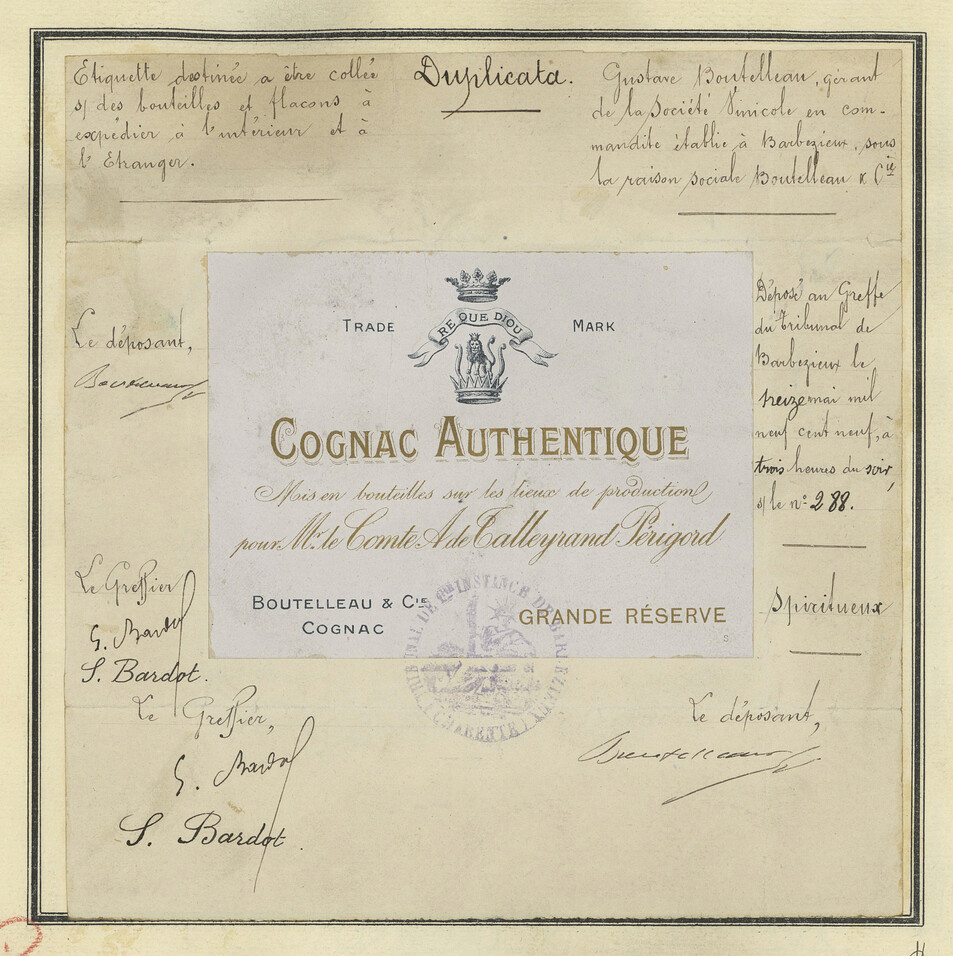 Etiquette destinée a être collée
s/ des bouteilles et flacons à
expédier à l'intérieur et à
l'Etranger.
Duplicata.
Gustave Boutelleau, gérant
de la Société Vinicole en com-
mandite établie à Barbezieux, sous
la raison sociale Boutelleau & Cie
Le déposant,
Boutelleau
TRADE MARK
RE QUE DIOU
COGNAC AUTHENTIQUE
Mis en bouteilles sur les lieux de production
pour Mr. le Comte A de Talleyrand Périgord
BOUTELLEAU & CIE
COGNAC
GRANDE RÉSERVE
S
Déposé au Greffe
du Tribunal de
Barbezieux le
treize mai mil
neuf cent neuf, à
trois heures du soir,
s/ le no 288.
Spiritueux
Le Greffier
S. Bardot
S. Bardot.
TRIBUNAL DE 1ERE INSTANCE DE BARBEZIEUX (CHARENTE)
Le Greffier,
S. Bardot
S. Bardot.
Le déposant,
Boutelleau